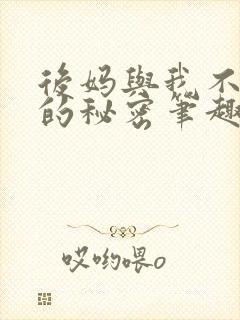 後妈與我不
的秘密笔趣
哎哟喂o